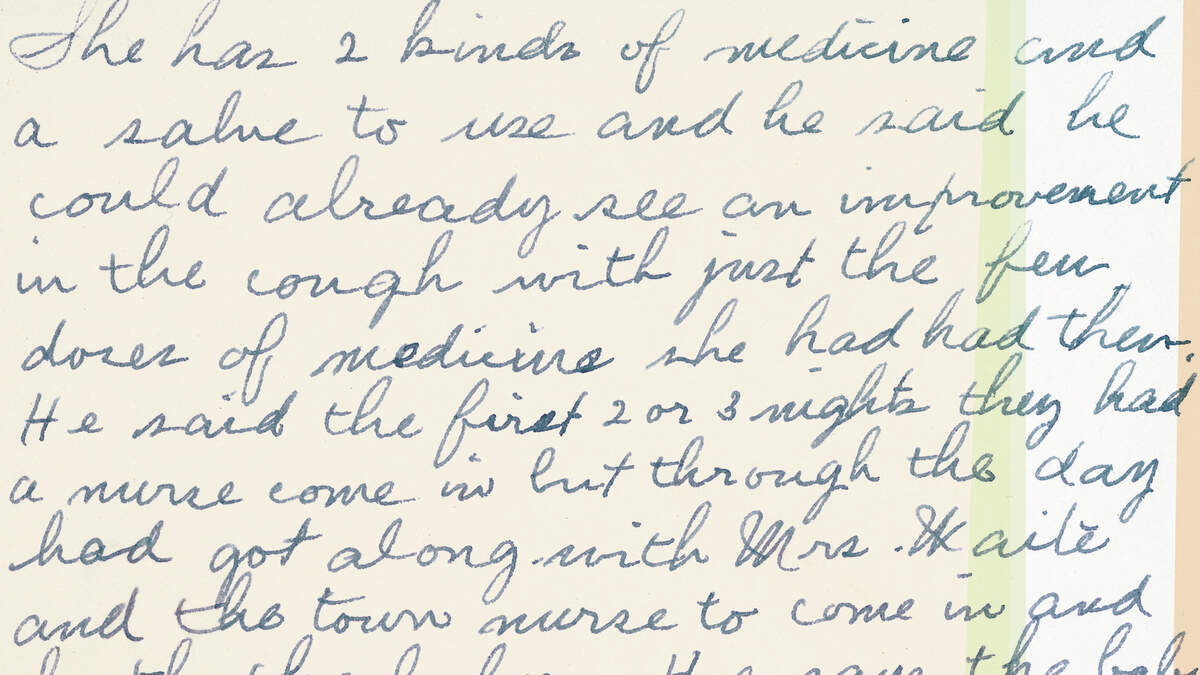 She has 2 kinds of medicine and
a salve to use and he said he
could already see an improvement
in the cough with just the few
doses of medicine she had had then.
He said the first 2 or 3 nights they had
a nurse come in but through the day
had got along with Mrs. Waite
and the town nurse to come in and
He says the baby